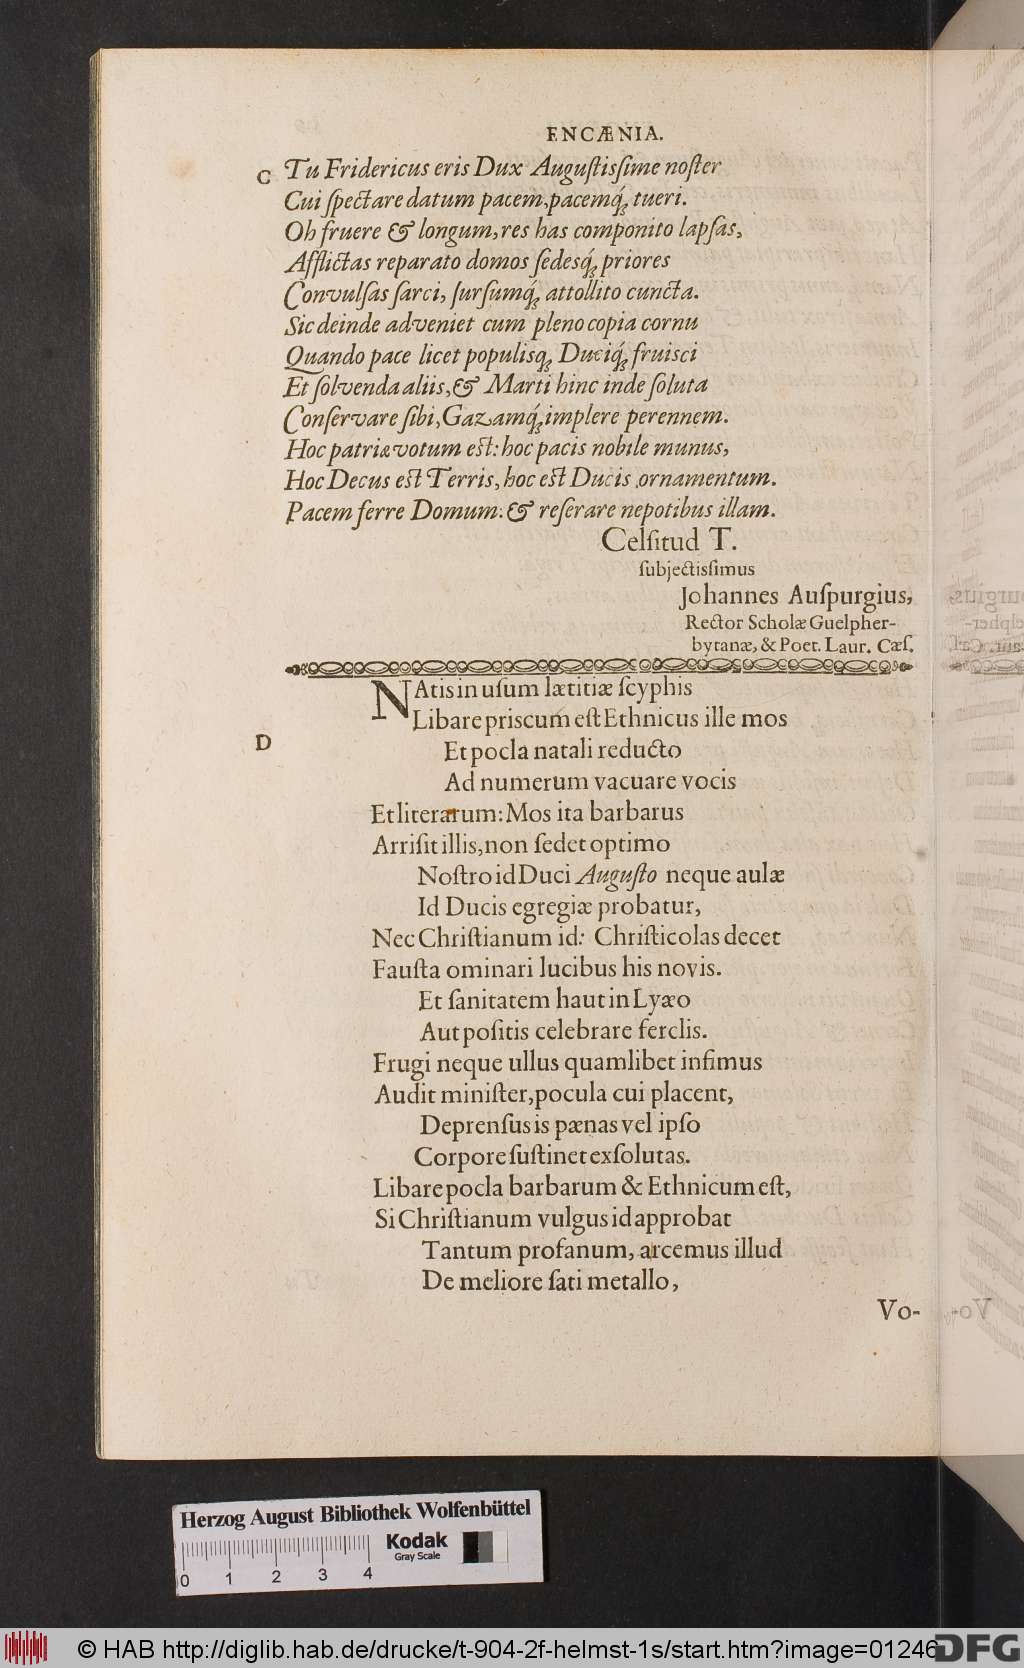 ENCÆNIA.
C Tu Fridericus eris Dux Augustisſime noſter
Cui ſpectare datum pacem, pacemq́ꝫ tueri.
Oh fruere & longum, res has componito lapſas,
Afflictas reparato domos ſedesq́ꝫ priores
Convulſas ſarci, ſurſumq́ꝫ attollito cuncta.
Sic deinde adveniet cum pleno copia cornu
Quando pace licet populisqꝫ Duciq́ꝫ fruisci
Et ſolvenda aliis, & Marti hinc inde ſoluta
Conſervare ſibi, Gazamq́ꝫ implere perennem.
Hoc patriæ votum eſt: hoc pacis nobile munus,
Hoc Decus eſt Terris, hoc eſt Ducis ornamentum.
Pacem ferre Domum: & reſerare nepotibus illam.
Celſitud T.
ſubjectisſimus
Johannes Auſpurgius,
Rector Scholæ Guelpher-
bytanæ, & Poet. Laur. Cæſ.
NAtis in uſum lætitiæ ſcyphis
Libare priscum eſt Ethnicus ille mos
D Et pocla natali reducto
Ad numerum vacuare vocis
Et literarum: Mos ita barbarus
Arriſit illis, non ſedet optimo
Noſtro id Duci Auguſto neque aulæ
Id Ducis egregiæ probatur,
Nec Chriſtianum id: Chriſticolas decet
Fauſta ominari lucibus his novis.
Et ſanitatem haut in Lyæo
Aut poſitis celebrare ferclis.
Frugi neque ullus quamlibet infimus
Audit miniſter, pocula cui placent,
Deprenſus is pænas vel ipſo
Corpore ſuſtinet exſolutas.
Libare pocla barbarum & Ethnicum eſt,
Si Chriſtianum vulgus id approbat
Tantum profanum, arcemus illud
De meliore ſati metallo,
Vo-
Herzog August Bibliothek Wolfenbüttel
Kodak
Gray Scale
0 1 2 3 4
© HAB http://diglib.hab.de/drucke/t-904-2f-helmst-1s/start.htm?image=01246
DFG